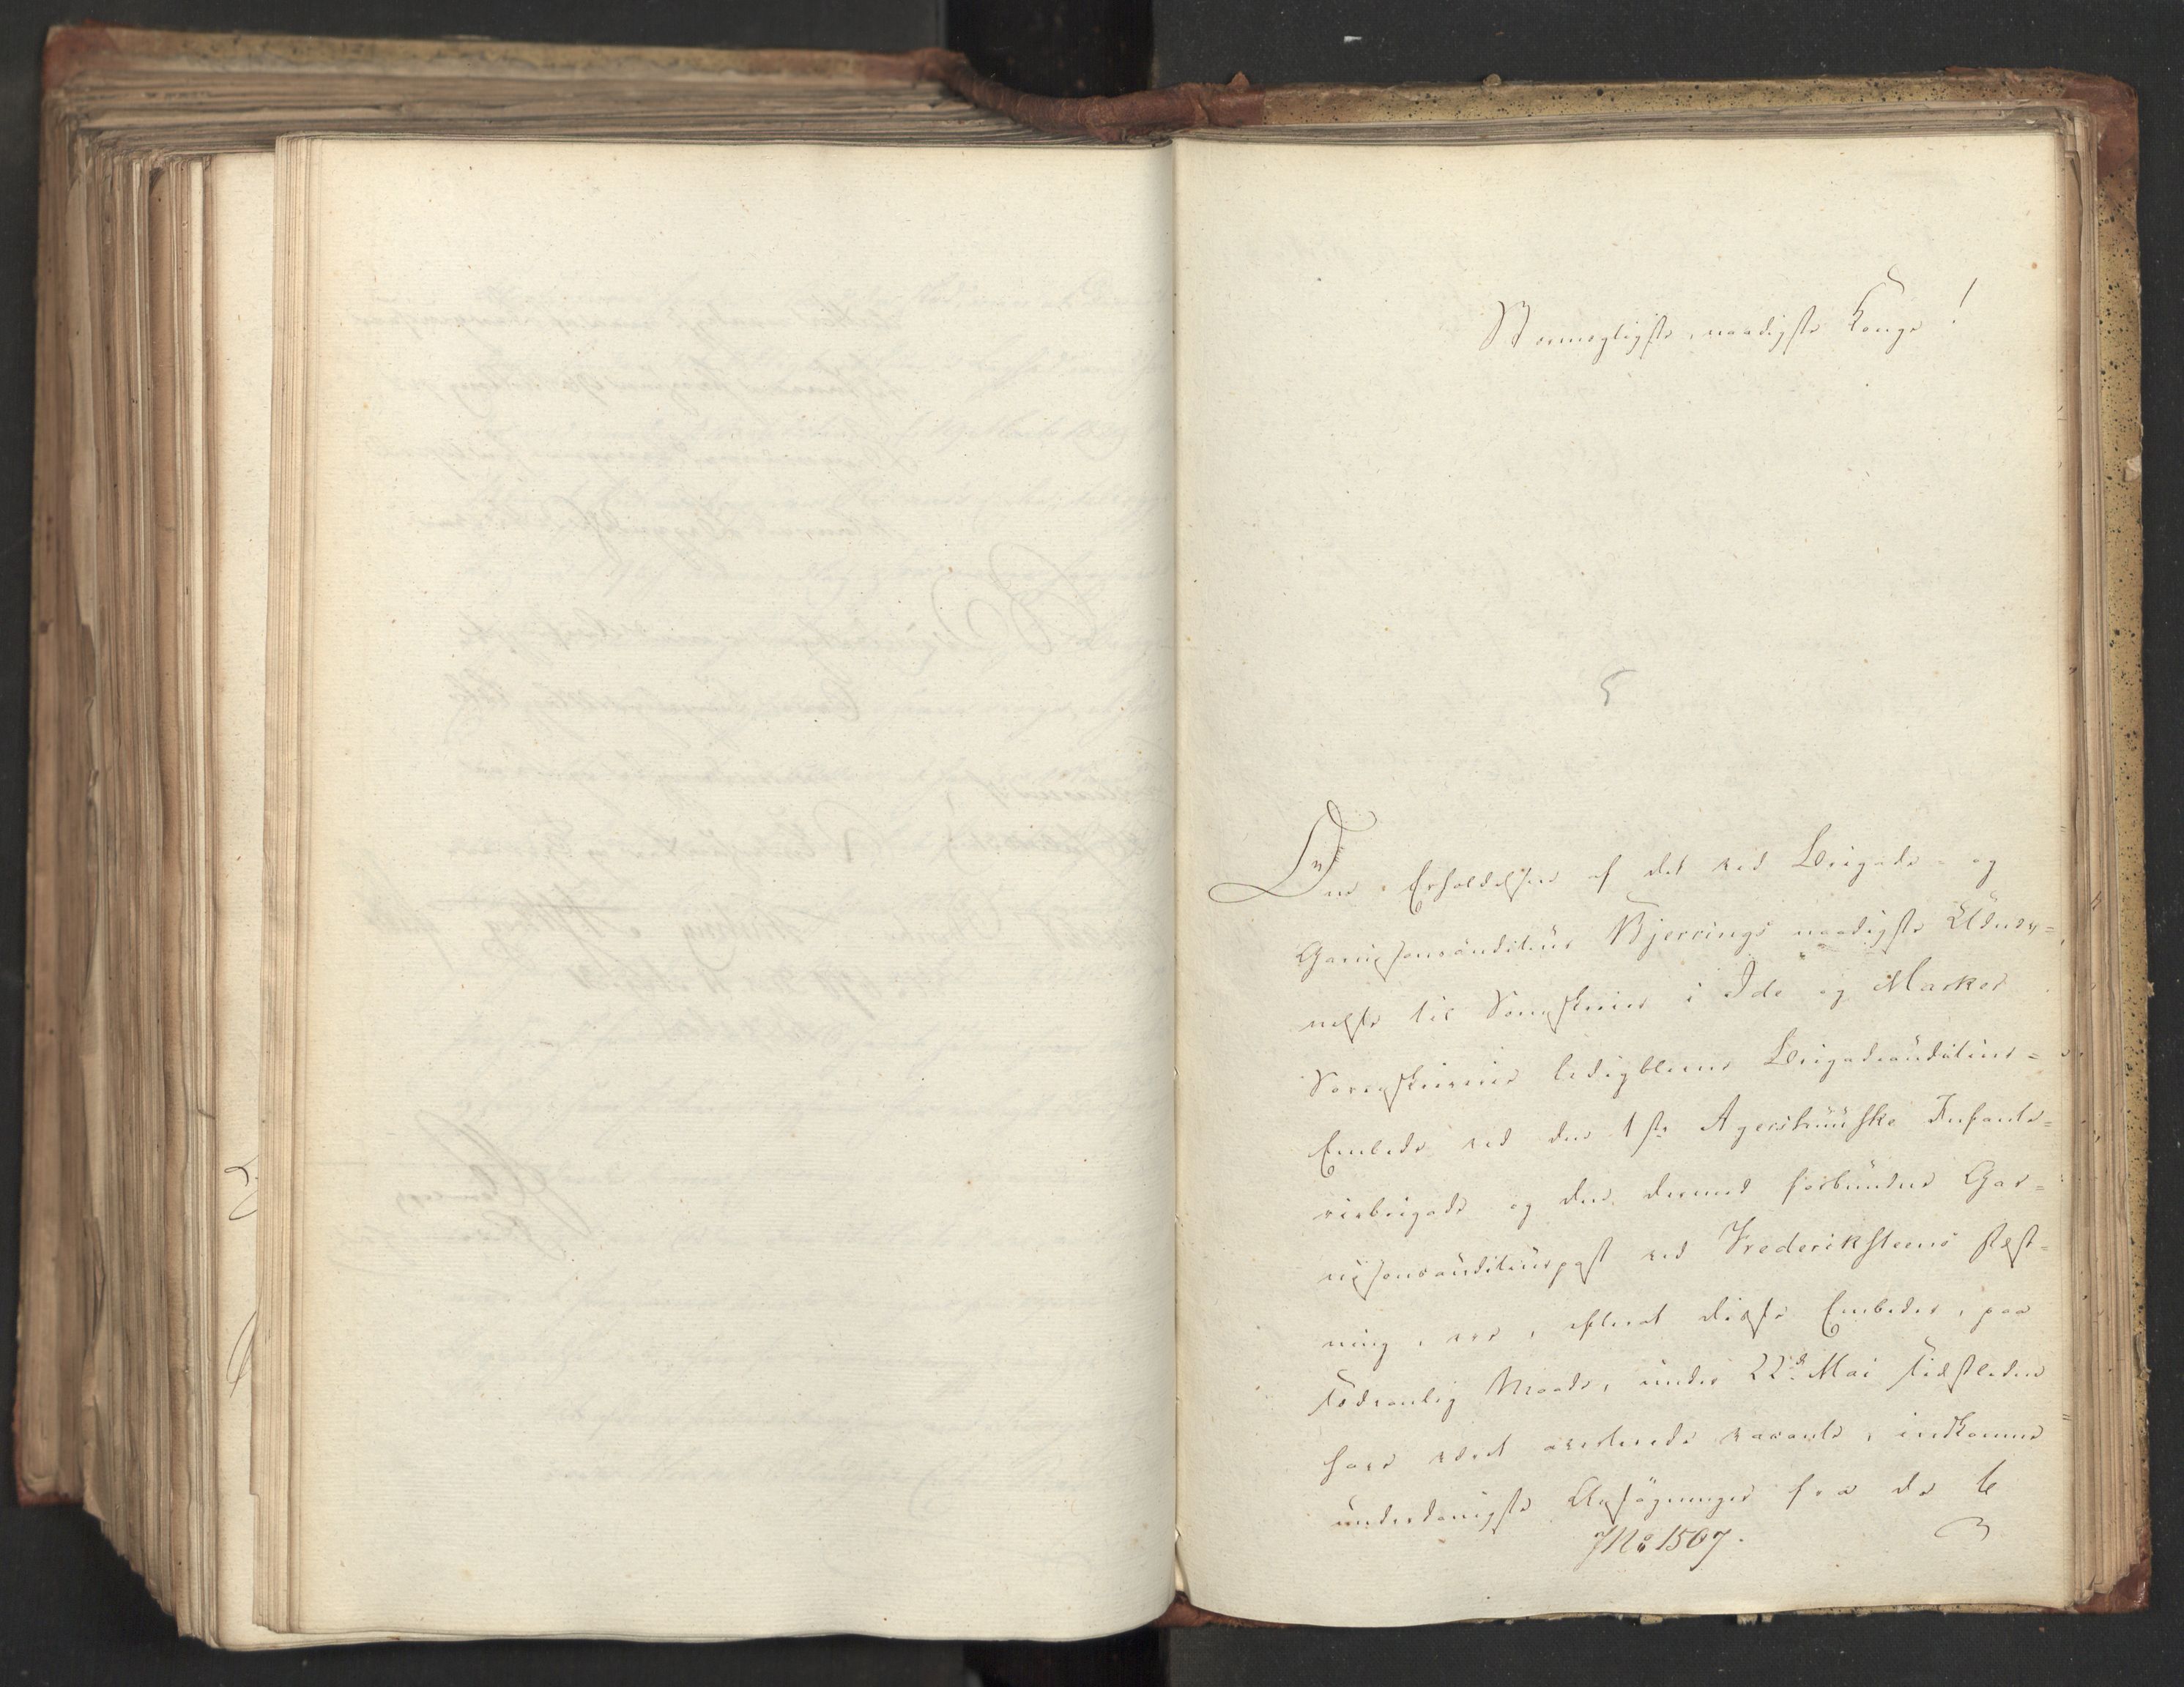 Stormægtigste, naadigste Konge!
5
Om Erholdelsen af det ved Brigade- og
Garnisonsauditeur Bjerrings naadigste Udnæv=
nelse til Sorenskriver i Ide og Marker
Sorenskriverie ledigblevne Brigadeauditeur=
Embede ved den 1ste Agershuuske Infante=
riebrigade og den dermed forbundne Gar=
nisonsauditeurpost ved Frederikstens Fæst=
ning, ere, efterat disse Embeder, paa
sædvanlig Maade, under 22d Mai sidstleden
have været averterede vacante, indkomne
underdanigste Ansøgninger fra de te
JNo 1507.